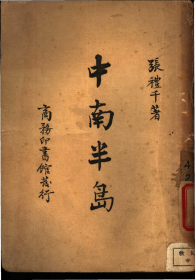 張禮千著
中南半島
商務印書館發行